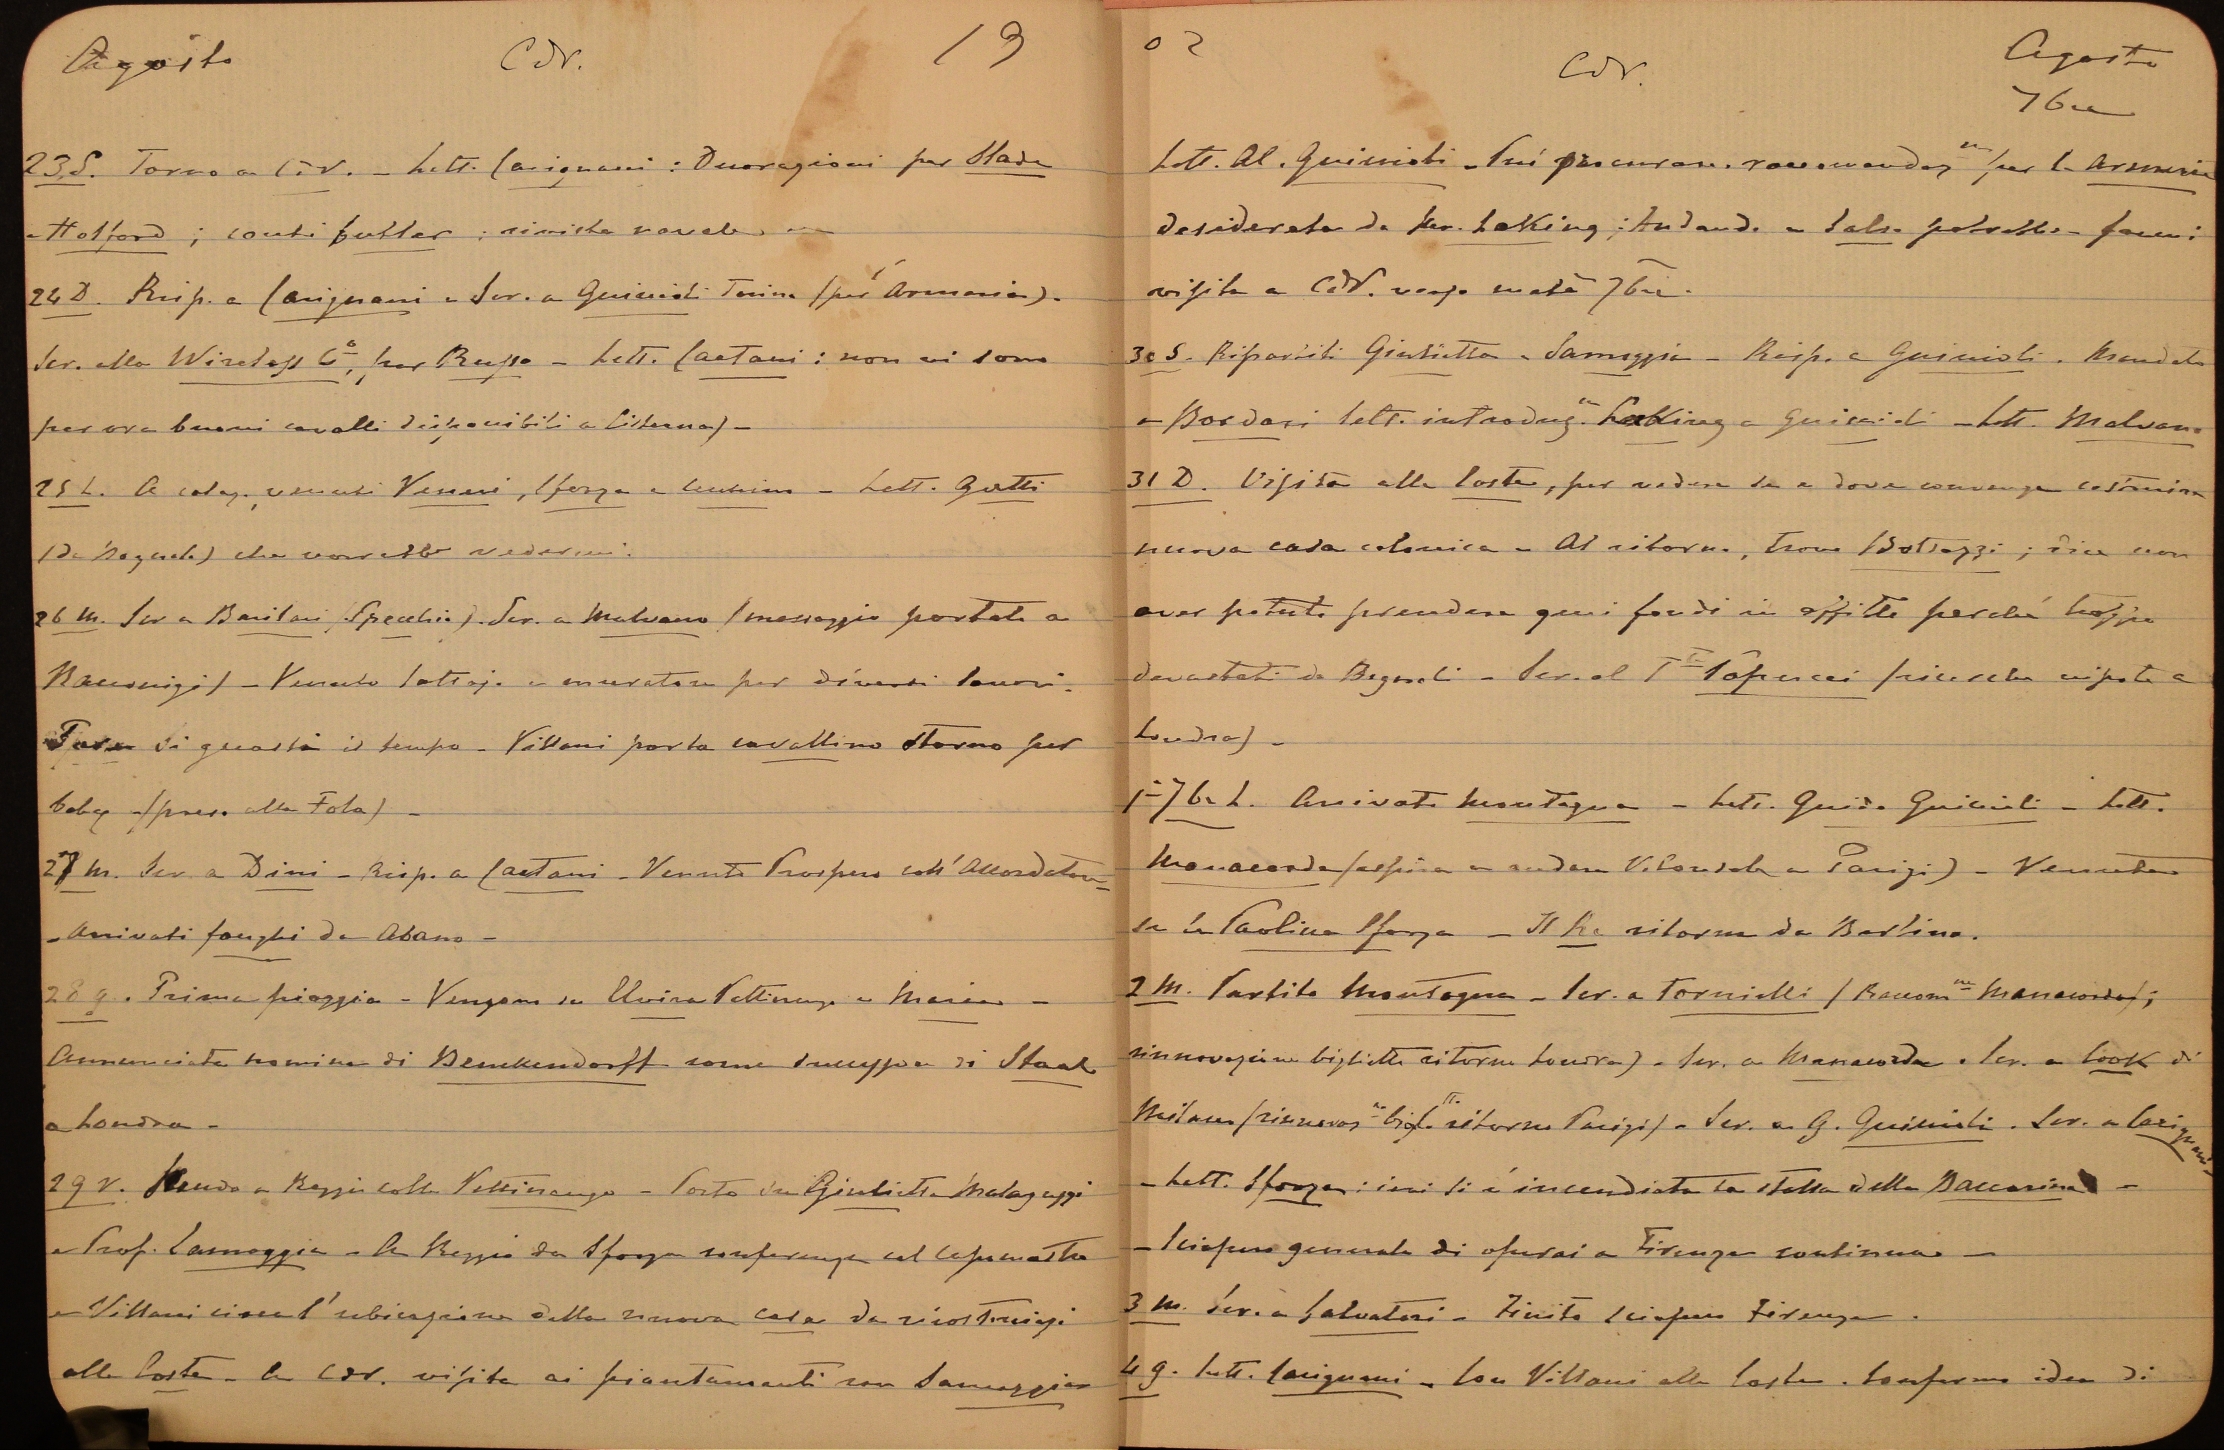 Agosto CdV. 19
23 S. Torno a CdV. - Lett. Carignani: Decorazioni per Slade
- Holford; conti Butler; rivista navale
24 D. Risp. a Carignani - Scr. a Guiccioli Torino (per Armeria).
Scr. alla Wireless Cº, per Russo - Lett. Caetani: non vi sono
per ora buoni cavalli disponibili a Cisterna) -
25 L. A colaz. venuti Veneri, Sforza e - Lett. Gatti
(da Bagnolo) che vorrebbe vedermi.
26 M. Scr. a Barilari (Specchio). Scr. a Malvano (messaggio portato a
Racconigi) - Venuto e muratore per diversi lavori.
si guasta il tempo - Villani porta cavallino storno per
baby - (preso alla Fola) -
27 M. Scr. a Dini - Risp. a Caetani - Venuto Prospero coll'Accordatore -
- Arrivati fanghi da Abano -
28 g. Prima pioggia - Vengono da Elvira Pettinengo e Maria -
Annunciata nomina di Benckendorff come successore di Staal
a Londra -
29 V. Mando a Reggio colla Pettinengo - Porto Giulietta Malaguzzi
e Prof. Samoggia - A Reggio da Sforza conferenza col Capomastro
e Villani circa l'ubicazione della nuova casa da ricostruirsi
alle Coste - A CdV. visita ai piantamenti con Samoggia
02 CdV. Agosto
7bre
Lett. Al. Guiccioli - Può procurare raccomandazne per le Armerie
desiderata da Mr. Laking; Andando a Salso potrebbe farmi
visita a CdV. verso metà 7bre.
30 S. Ripartiti Giulietta e Samoggia - Risp. a Guiccioli. Mandato
a Bordari lett. introduzne Laking a Guiccioli - Lett. Malvano
31 D. Visita alle Coste, per vedere se e dove convenga costruire
nuova casa colonica - Al ritorno, trovo Bottazzi; dice non
aver potuto prendere quei fondi in affitto perché troppo
devastati da Bagnoli - Scr. al Tte Capucci (ricerche nipote a
Londra) -
1º 7bre L. Arrivato Montagna - Lett. Guido Guiccioli - Lett.
Manacorda (aspira a andare V. Console a Parigi) - Venuta
la Paolina Sforza - Il Re ritorna da Berlino.
2 M. Partito Montagna - Scr. a Tornielli (Raccomne Manacorda;
rinnovazione biglietto ritorno Londra) - Scr. a Manacorda. Scr. a Cook di
Milano (rinnovazne bigltt. ritorno Parigi) - Scr. a G. Guiccioli. Scr. a Carignani
- Lett. Sforza: ieri si è incendiata la stalla della Baccarina -
- Sciopero generale di operai a Firenze continua -
3 M. Scr. a Salvatori - Finito sciopero Firenze.
4 g. Lett. Carignani - Con Villani alle Coste. Confermo idea di